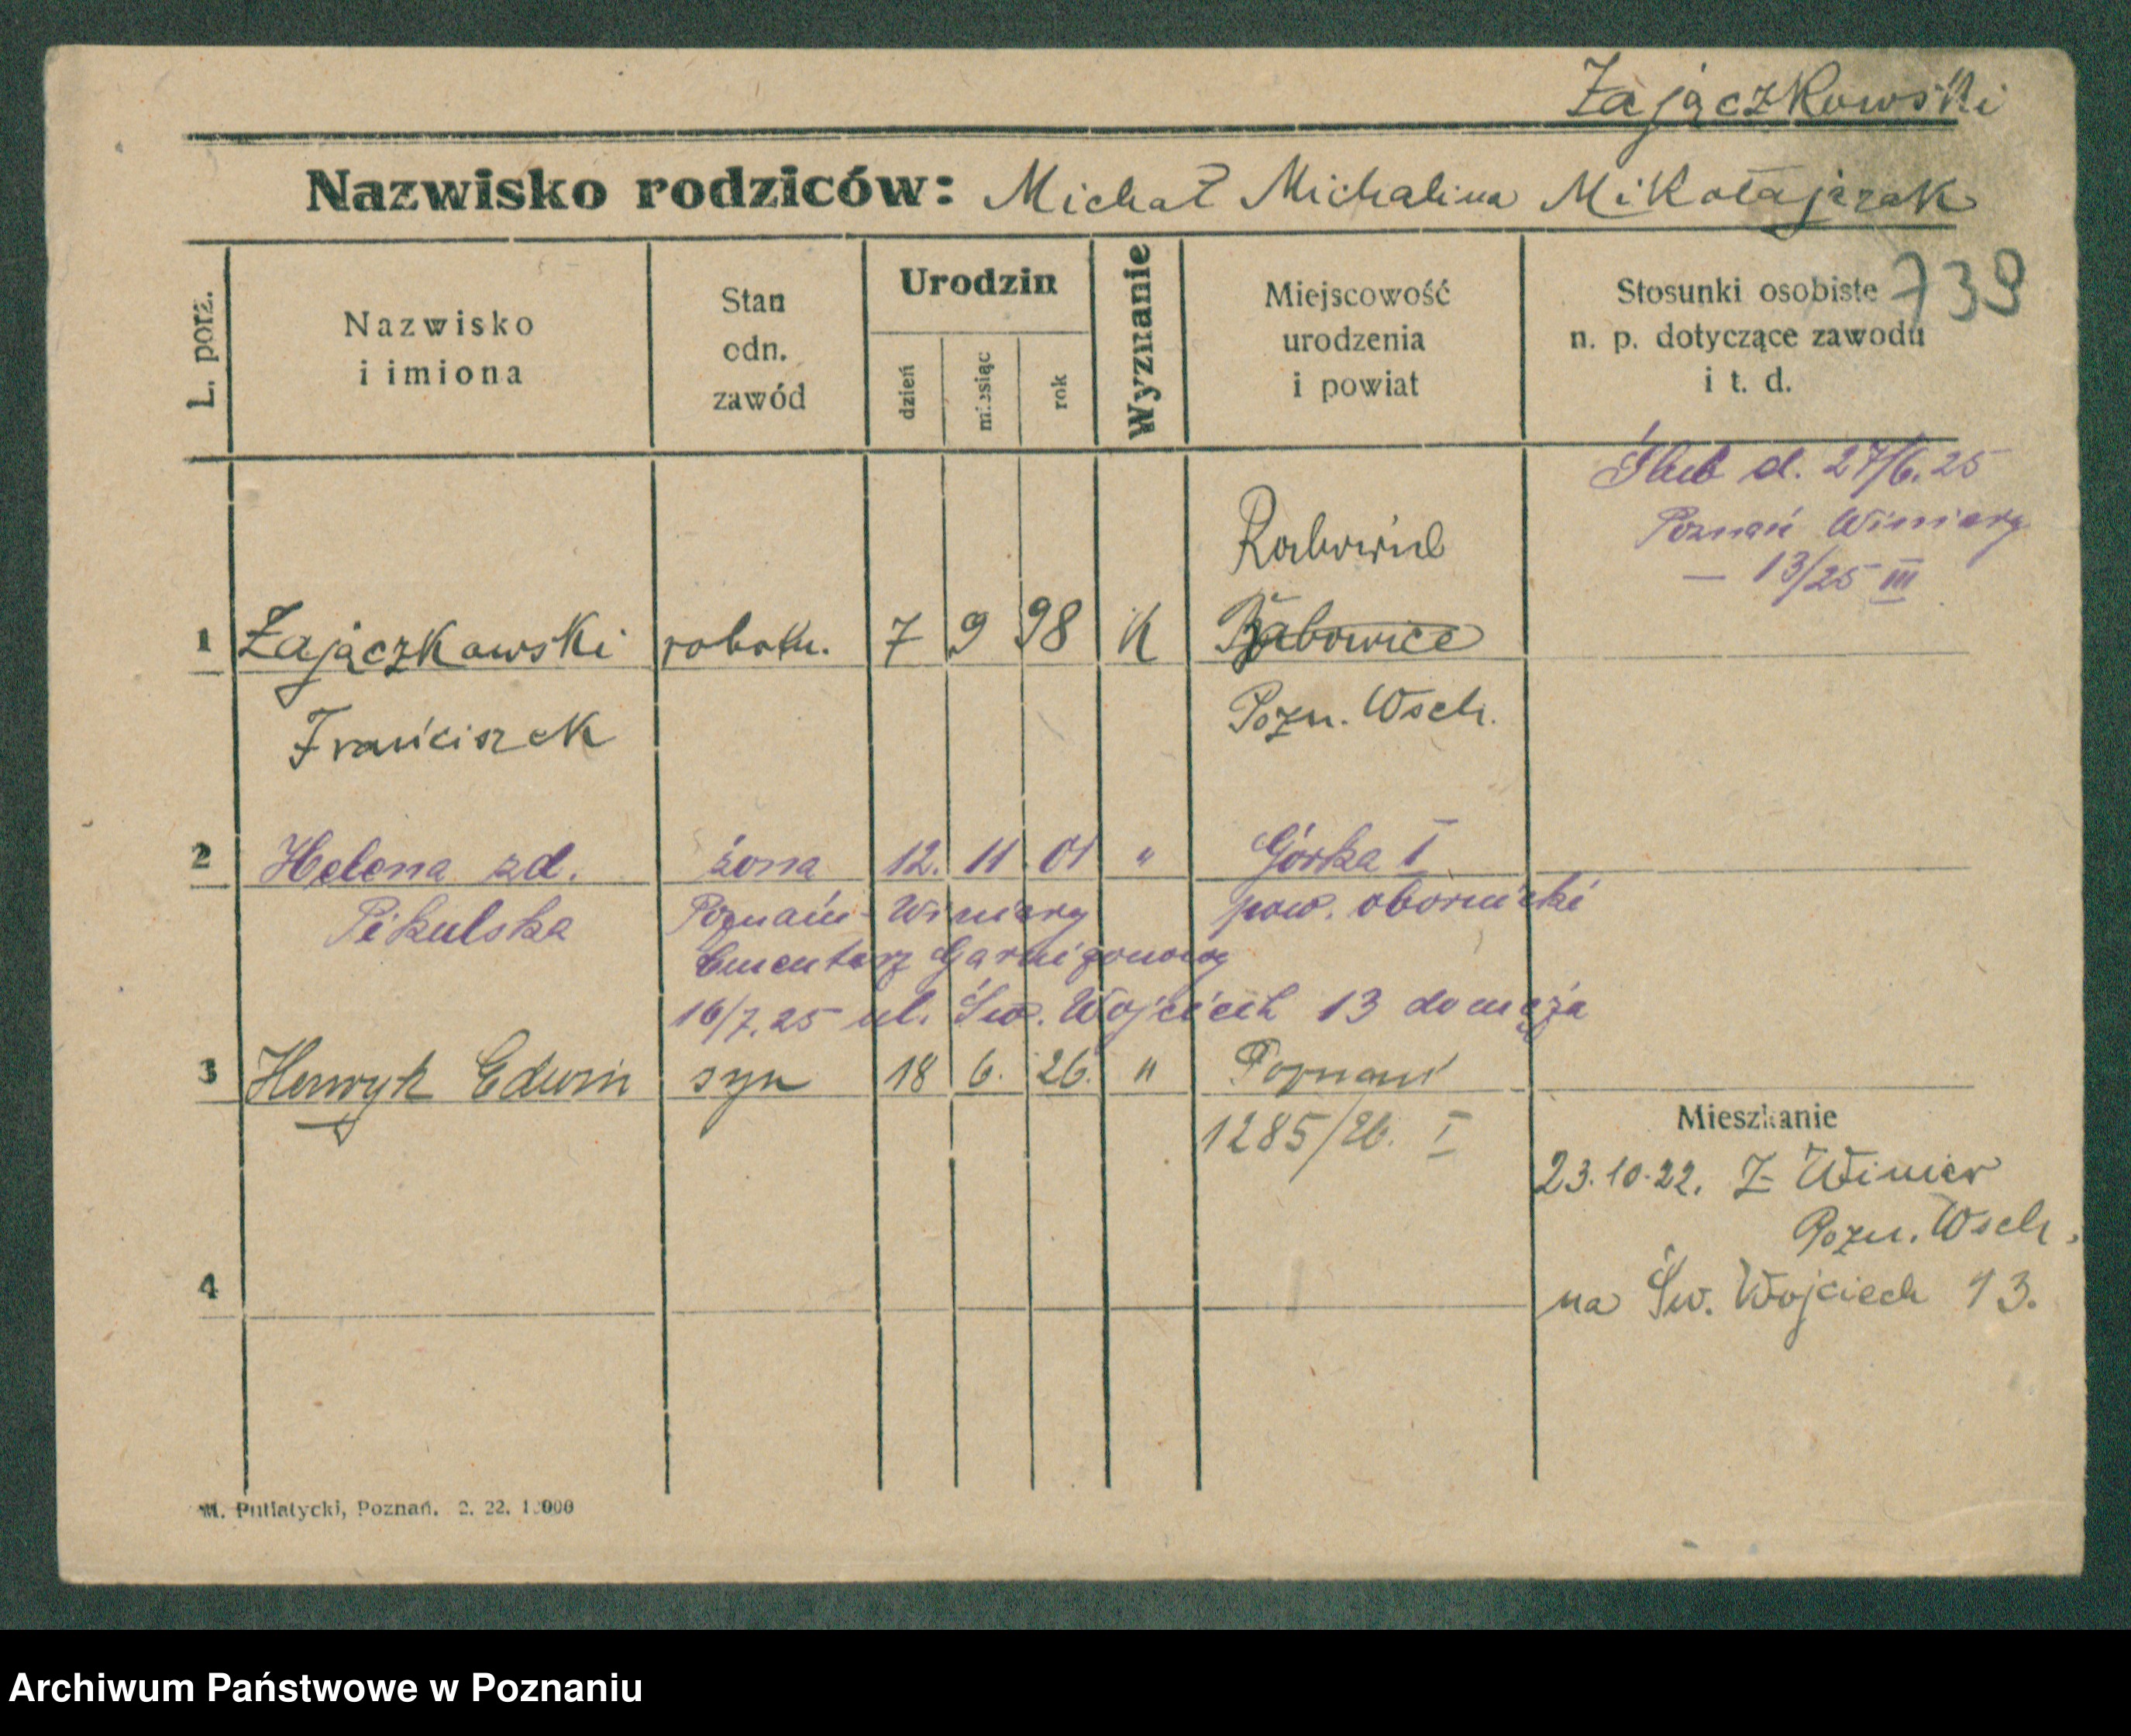 Zajączkowski
Nazwisko rodziców: Michał Michalina Mikołajczak
739
L. porz.
Nazwisko
i imiona
Stan
odn.
zawód
Urodzin
dzień
miesiąc
rok
Wyznanie
Miejscowość
urodzenia
i powiat
Stosunki osobiste
n. p. dotyczące zawodu
i t. d.
Ślub d. 27/6.25
Poznań Winiary
— 13/25 III
1 Zajączkowski robotn. 7 9 98 K Babowice
Franciszek Pozn. Wsch.
2 Helena zd. żona 12. 11. 01 " Górka I
Pikulska pow. obornicki
Poznań-Winiary
Cmentarz Garnizonowy
16/7.25 ul. Św. Wojciech 13 do męża
3 Henryk Edwin syn 18 6. 26. " Poznań
1285/26. I
Mieszkanie
23.10.22. Z Winiar
Pozn. Wsch.
na Św. Wojciech 13.
4
M. Putiatycki, Poznań. 2. 22.
Archiwum Państwowe w Poznaniu